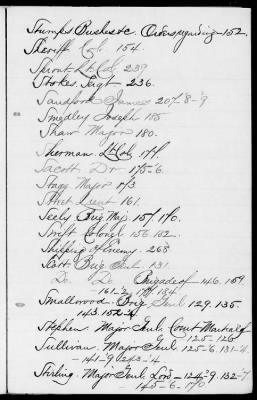 Stumps Bushes &c. Orders regarding - 152.
Sheriff Col. 154.
Sprout Lt. Col. 239
Stokes. Sergt 236.
Sandford James 207-8-9
Smedley Joseph 185
Shaw Major 180.
Sherman. Lt. Col. 171.
Scott Dr 175-6.
Stagg Major 173
Lieut 161.
Seely Brig. Maj. 157. 170.
Swift Colonel 156. 162.
Shipping of Enemy. 268
Scott Brig Genl 131.
Do. Do. Brigade of 146. 159.
161-2. 184
Smallwood. Brig Genl 129. 135.
143. 152-4
Stephen. Major Genl. Court Martial of
125-126
Sullivan. Major Genl. 125-6. 131-4.
141-9. 243-4.
Stirling. Major Genl. Lord - 124-9. 132-7
145-6. 170